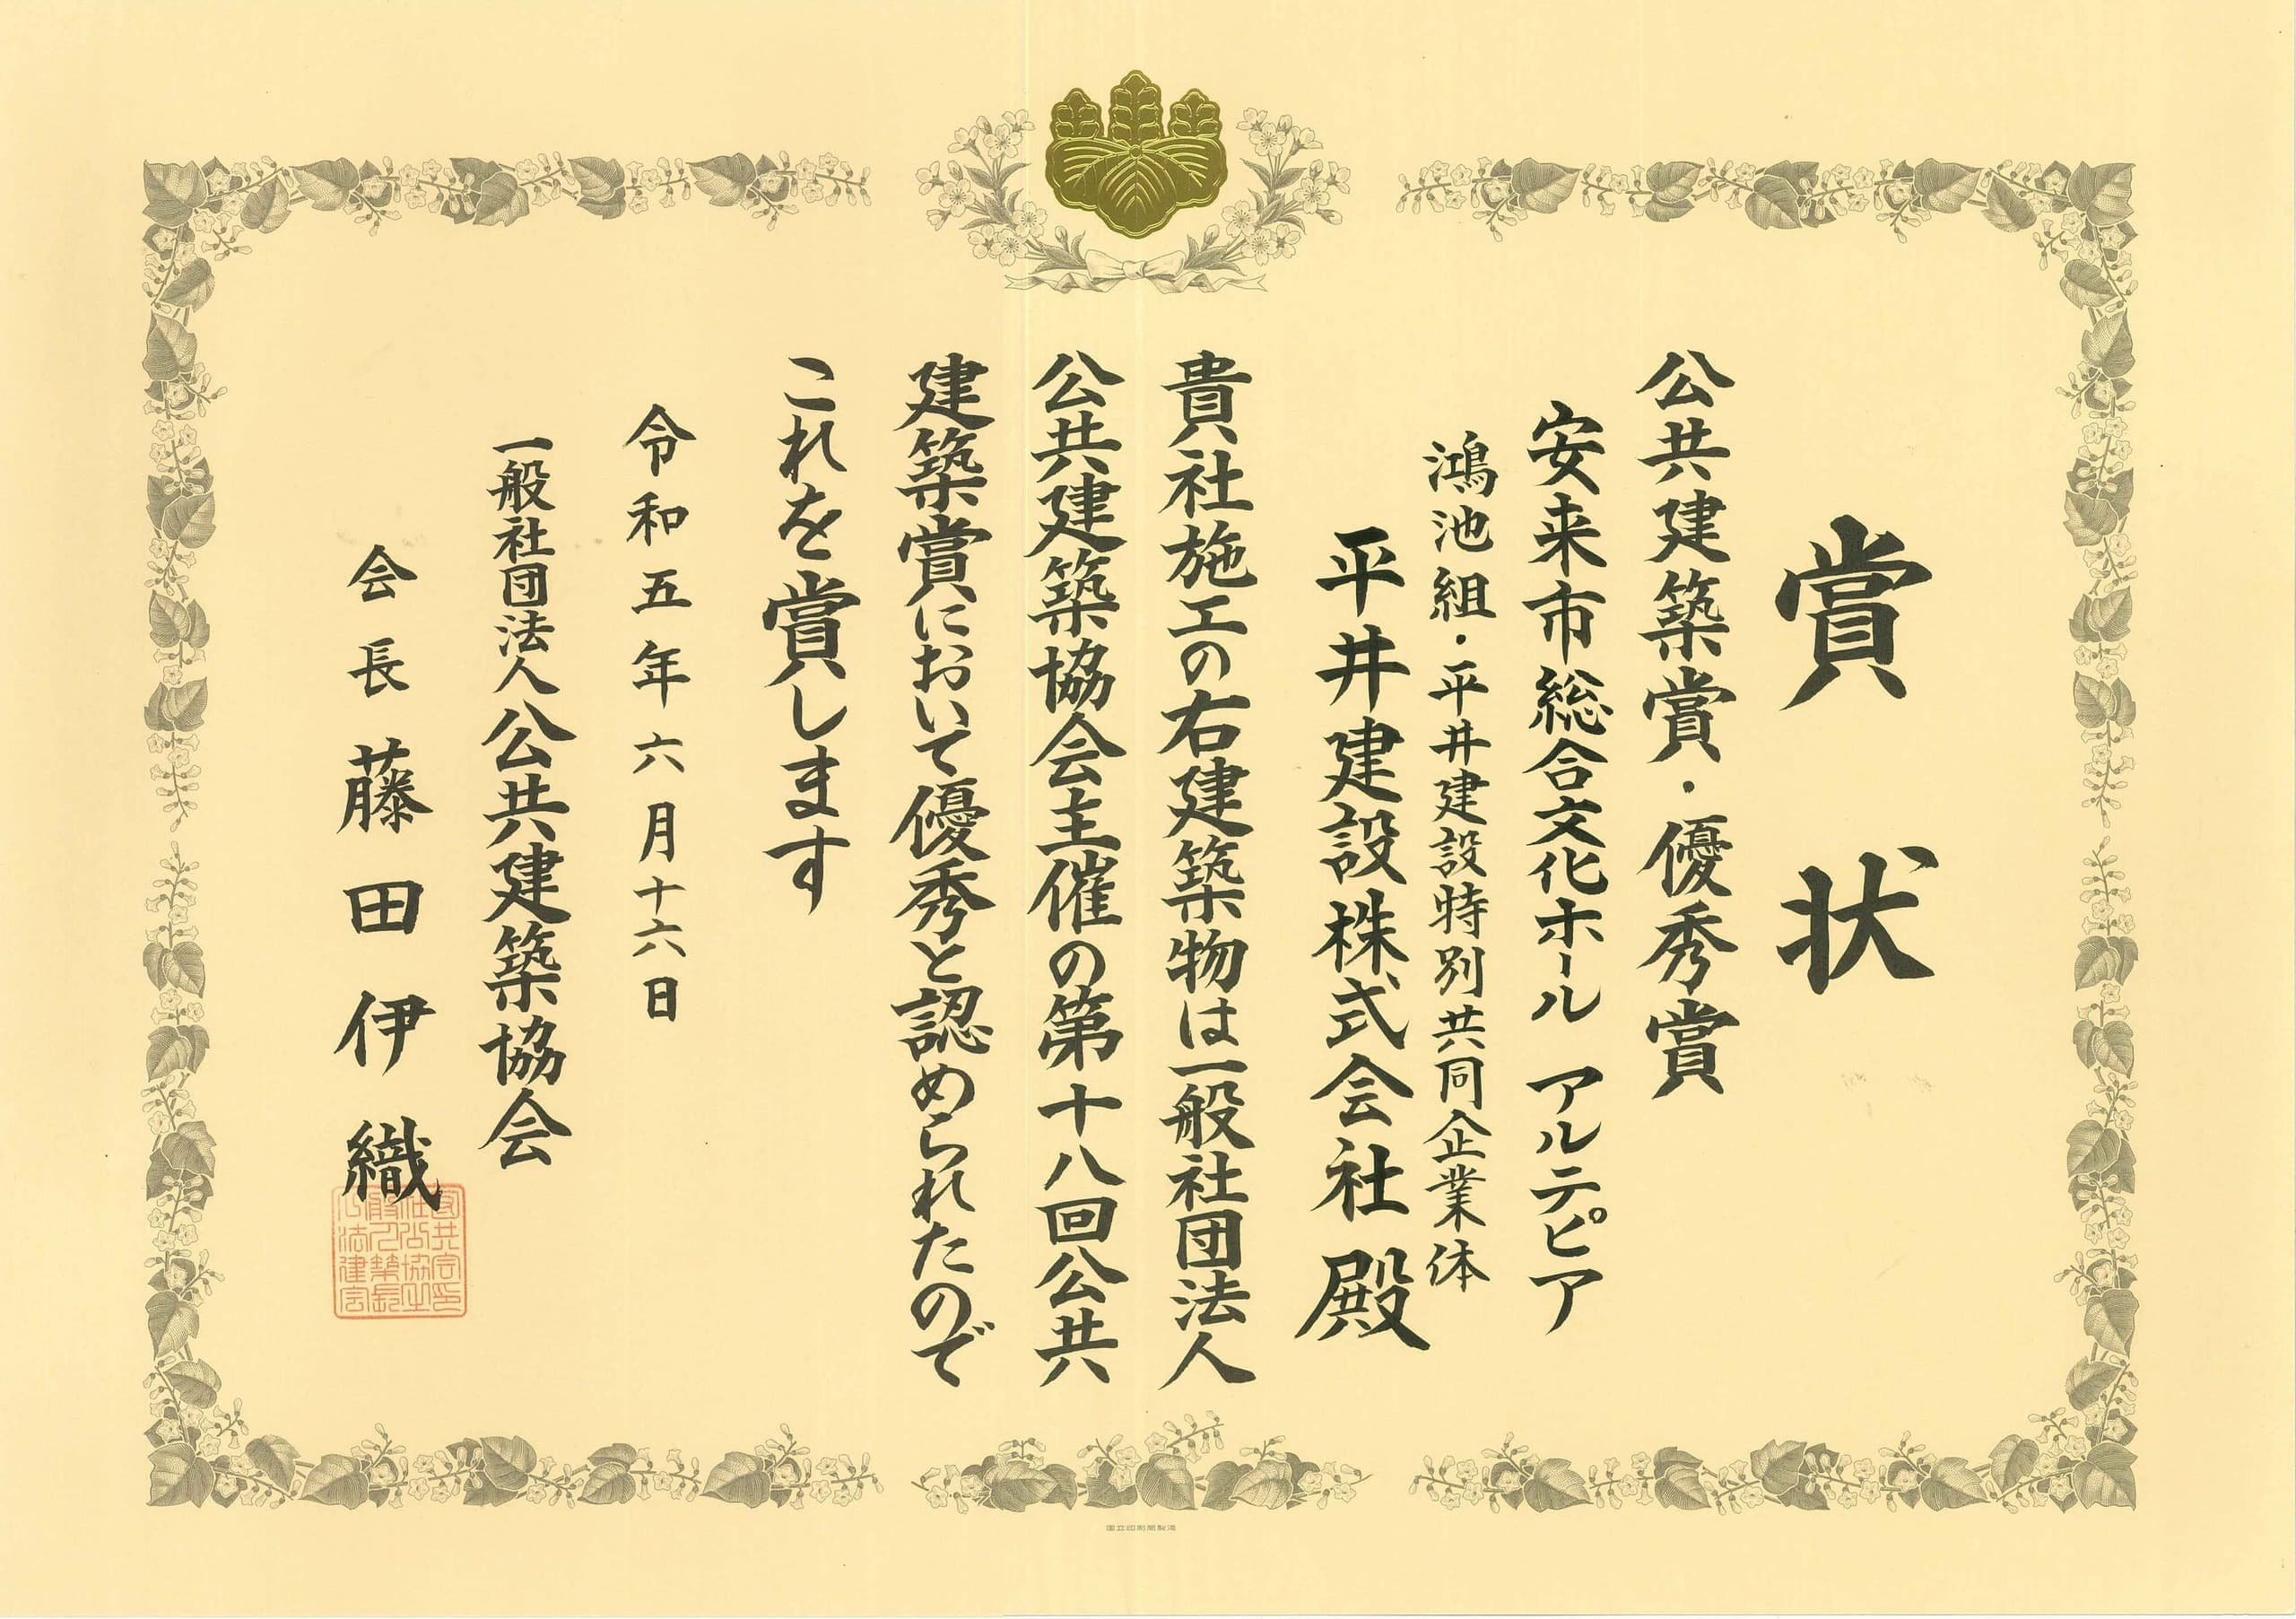 賞状
公共建築賞・優秀賞
安来市総合文化ホール アルテピア
鴻池組・平井建設特別共同企業体
平井建設株式会社 殿
貴社施工の右建築物は一般社団法人
公共建築協会主催の第十八回公共
建築賞において優秀と認められたので
これを賞します
令和五年六月十六日
一般社団法人公共建築協会
会長 藤田伊織
国立印刷局製造